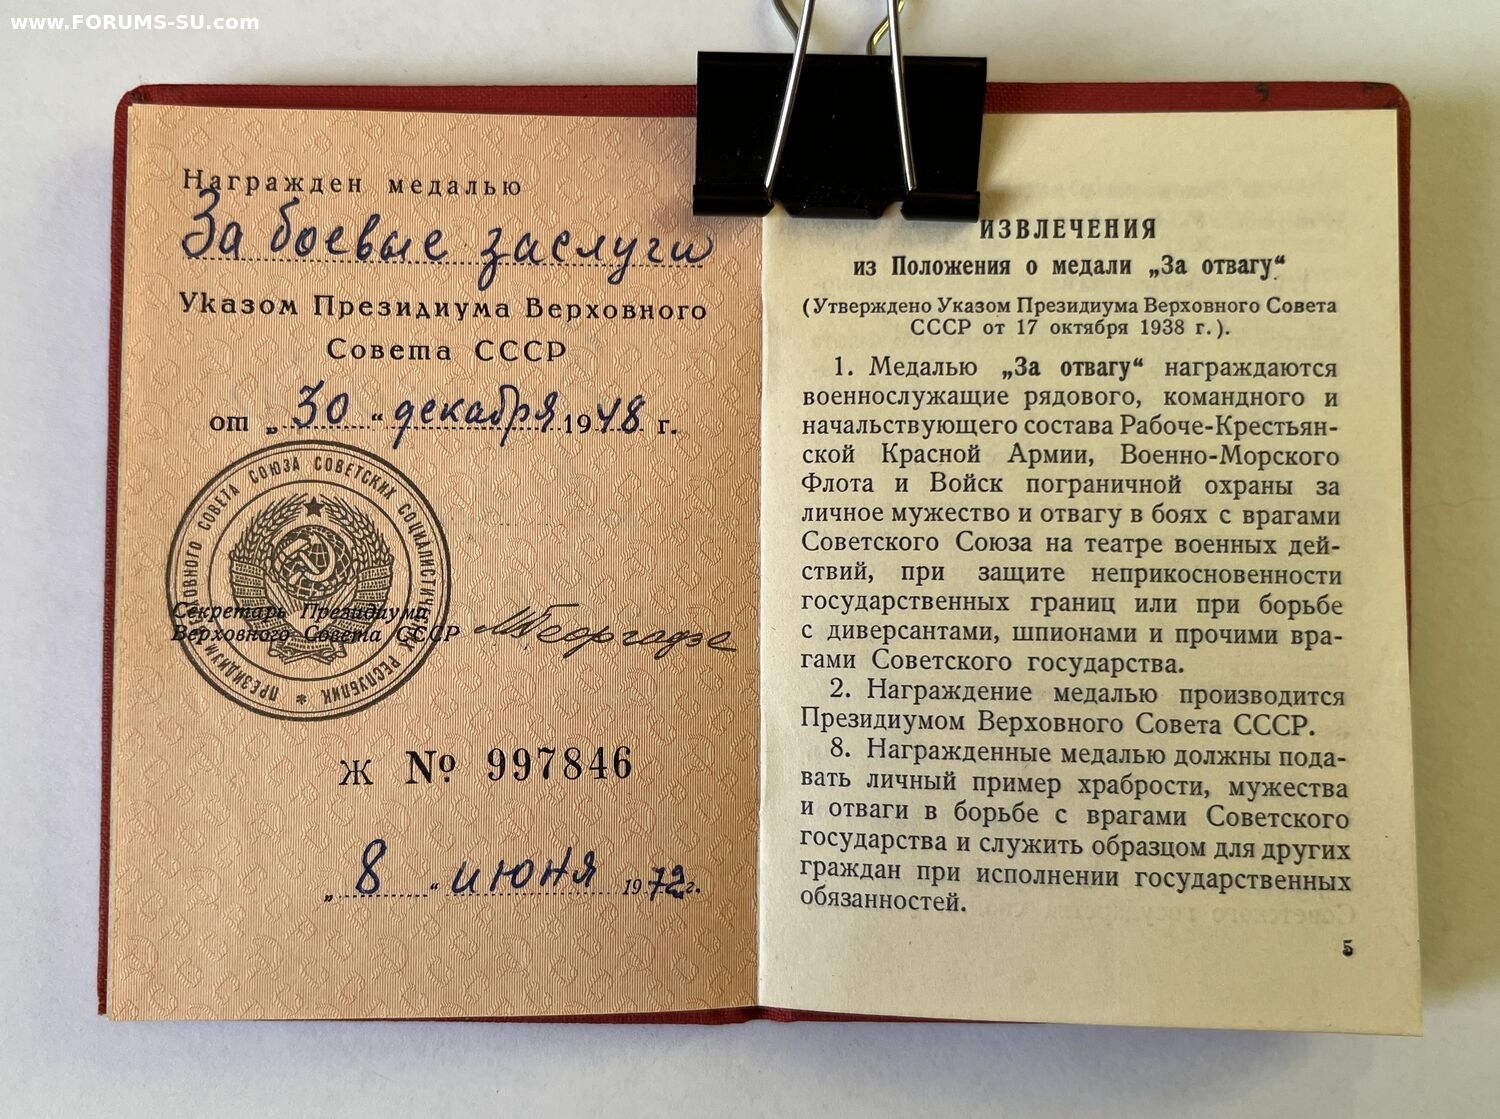 www.FORUMS-SU.com
Награжден медалью
За боевые заслуги
Указом Президиума Верховного
Совета СССР
от „30“ декабря 1948 г.
ПРЕЗИДИУМ ВЕРХОВНОГО СОВЕТА СОЮЗА СОВЕТСКИХ СОЦИАЛИСТИЧЕСКИХ РЕСПУБЛИК *
Секретарь Президиума
Верховного Совета СССР МГеоргадзе
Ж № 997846
„8“ июня 1972 г.
ИЗВЛЕЧЕНИЯ
из Положения о медали „За отвагу“
(Утверждено Указом Президиума Верховного Совета
СССР от 17 октября 1938 г.).
1. Медалью „За отвагу“ награждаются
военнослужащие рядового, командного и
начальствующего состава Рабоче-Крестьян-
ской Красной Армии, Военно-Морского
Флота и Войск пограничной охраны за
личное мужество и отвагу в боях с врагами
Советского Союза на театре военных дей-
ствий, при защите неприкосновенности
государственных границ или при борьбе
с диверсантами, шпионами и прочими вра-
гами Советского государства.
2. Награждение медалью производится
Президиумом Верховного Совета СССР.
8. Награжденные медалью должны пода-
вать личный пример храбрости, мужества
и отваги в борьбе с врагами Советского
государства и служить образцом для других
граждан при исполнении государственных
обязанностей.
5